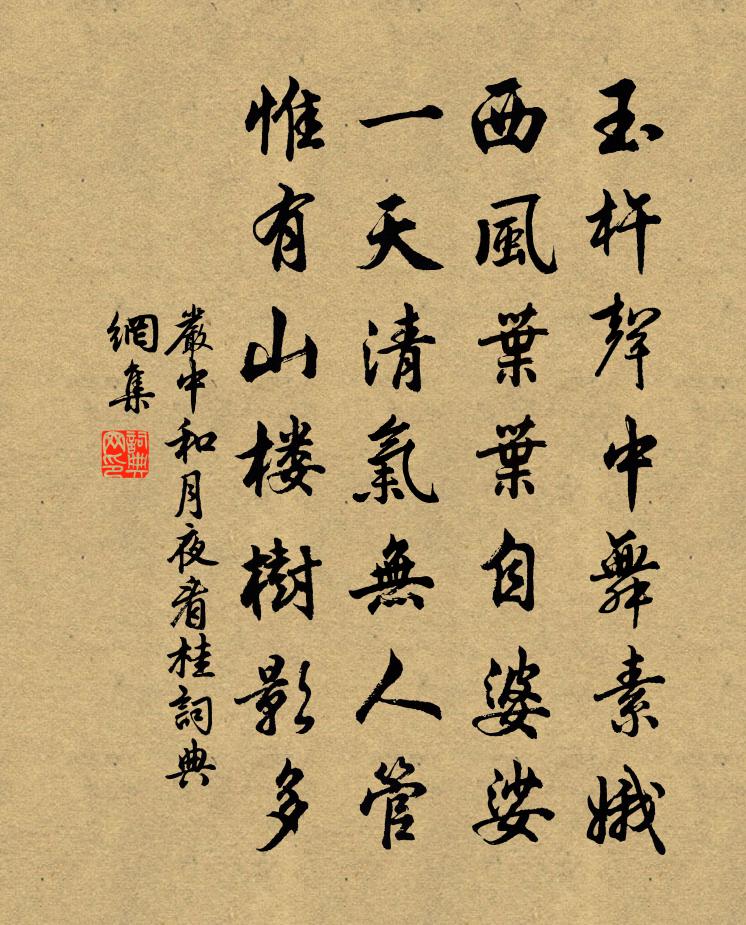 玉杵聲中舞素娥
西風葉葉自婆娑
一天清氣無人管
惟有山楼樹影多
嚴中和月夜看桂詞典
網集
詞典
网印